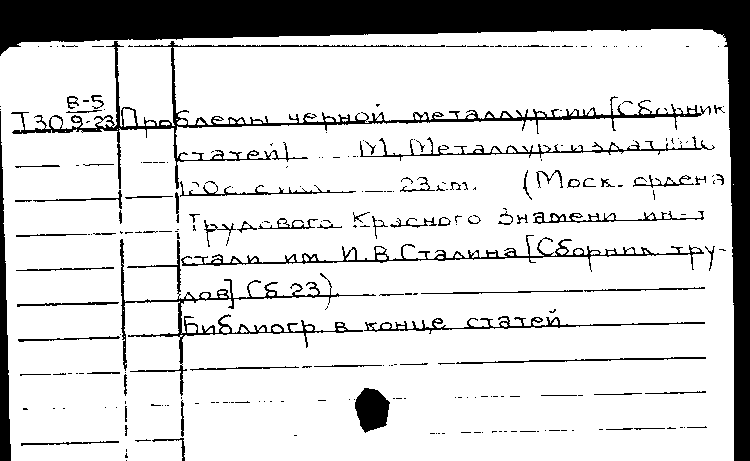 В-5
Т30 9-23 Проблемы черной металлургии [Сборник
статей] М., Металлургиздат,
120 с. с илл. 23 см. (Моск. ордена
Трудового Красного Знамени ин-т
стали им. И.В. Сталина [Сборник тру-
дов] Сб. 23)
Библиогр. в конце статей